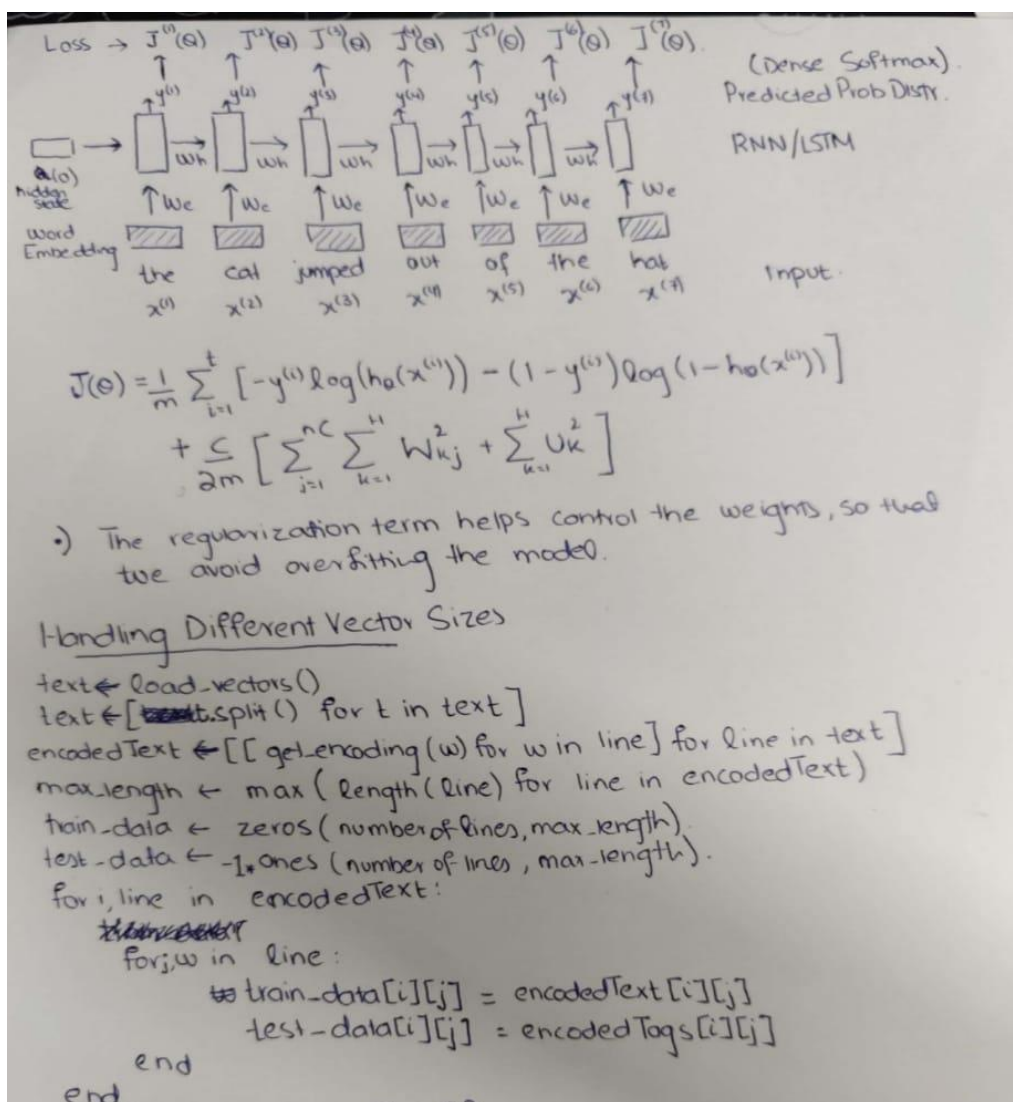 Loss → J⁽¹⁾(θ) J⁽²⁾(θ) J⁽³⁾(θ) J⁽⁴⁾(θ) J⁽⁵⁾(θ) J⁽⁶⁾(θ) J⁽⁷⁾(θ).
(Dense Softmax).
y⁽¹⁾ y⁽²⁾ y⁽³⁾ y⁽⁴⁾ y⁽⁵⁾ y⁽⁶⁾ y⁽⁷⁾ Predicted Prob Distr.
Wh Wh Wh Wh Wh Wh RNN/LSTM
(0)
hidden
state
We We We We We We We
Word
Embedding
the cat jumped out of the hat Input.
x⁽¹⁾ x⁽²⁾ x⁽³⁾ x⁽⁴⁾ x⁽⁵⁾ x⁽⁶⁾ x⁽⁷⁾
J(θ) = 1/m Σᵢ₌₁ᵗ [-y⁽ⁱ⁾ log(hθ(x⁽ⁱ⁾)) - (1 - y⁽ⁱ⁾) log(1 - hθ(x⁽ⁱ⁾))]
+ C/2m [Σⱼ₌₁ⁿᶜ Σₖ₌₁ᴴ W²ₖⱼ + Σₖ₌₁ᴴ U²ₖ]
•) The regularization term helps control the weights, so that
we avoid overfitting the model.
Handling Different Vector Sizes
text ← load_vectors()
text ← [t.split() for t in text]
encodedText ← [[get_encoding(w) for w in line] for line in text]
max_length ← max(length(line) for line in encodedText)
train_data ← zeros(number of lines, max_length).
test_data ← -1*ones(number of lines, max_length).
for i, line in encodedText:
for j,w in line:
train_data[i][j] = encodedText[i][j]
test_data[i][j] = encodedTags[i][j]
end
end